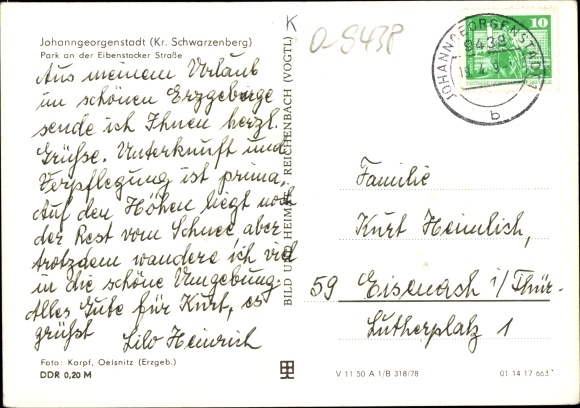 K
O-9438
10
JOHANNGEORGENSTADT 1
9438
b
Johanngeorgenstadt (Kr. Schwarzenberg)
Park an der Eibenstocker Straße
Aus meinem Urlaub
im schönen Erzgebirge
sende ich Ihnen herzl.
Grüße. Unterkunft und
Verpflegung ist prima,
Auf den Höhen liegt noch
der Rest vom Schnee aber
trotzdem wandere ich viel
in die schöne Umgebung.
Alles Gute für Kurt, es
grüßt
Lilo Heinrich
Foto: Karpf, Oelsnitz (Erzgeb.)
DDR 0,20 M
BILD UND HEIMAT REICHENBACH (VOGTL)
Familie
Kurt Heimlich,
59 Eisenach i/Thür.
Lutherplatz 1
V 11 50 A 1/B 318/78
01 14 17 663